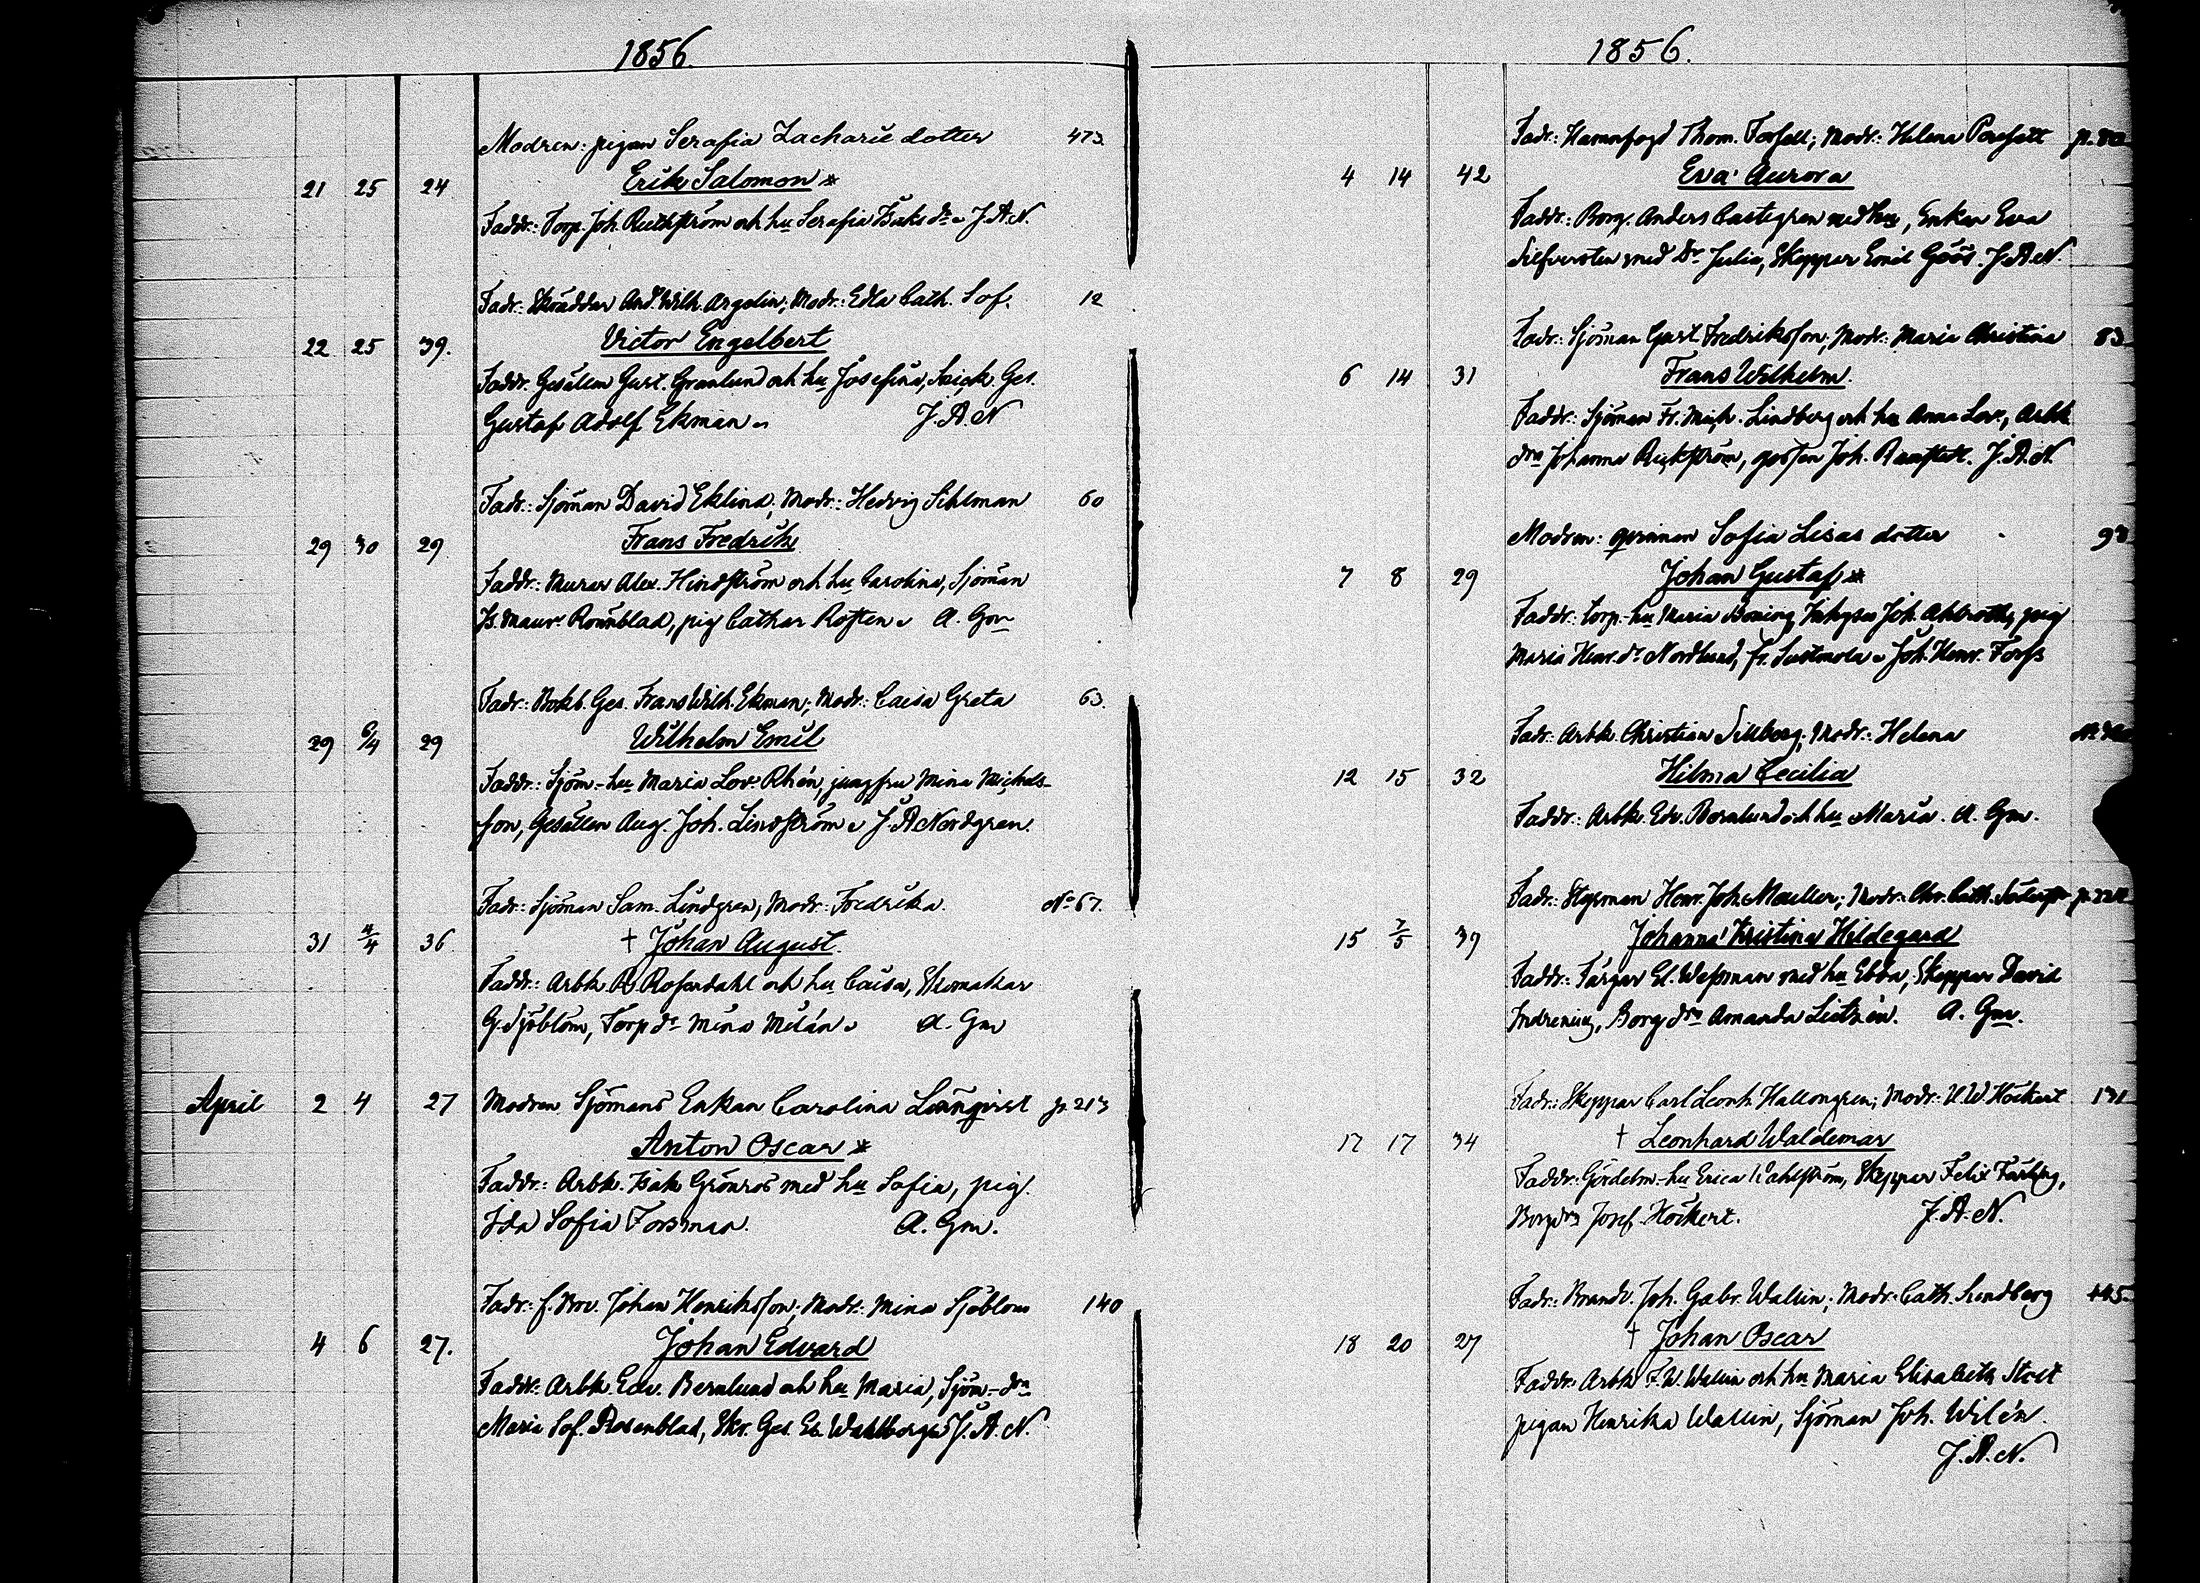 1856.
Modren: pigan Serafia Zacharie dotter 473
21 25 24 Erik Salomon *
Faddr: Torp. Joh. Ruthström och hu Serafia Isaks dr J.A.N.
Fadr: Skräddar And. Wilh. Argelin; Modr: Edla Cath. Sof. 12
22 25 39. Victor Engelbert
Faddr. Gesällen Gust. Granlund och hu Josefina, Snick. Ges.
Gustaf Adolf Ekman J.A.N
Fadr: Sjöman David Eklind; Modr: Hedvig Sihlman 60
29 30 29 Frans Fredrik
Faddr: Murar Alex. Hindström och hu Carolina, Sjöman
Is. Maur. Rönnblad, pig Cathar A. Gm
Fadr: Bokb. Ges. Frans Wilh. Ekman; Modr: Caisa Greta 63.
29 6/4 29 Wilhelm Emil
Faddr: Sjöm-hu Maria Lov. Rhén, jungfru Mina Michels-
son, Gesällen Aug. Joh. Lindström J.A. Nordgren.
Fadr: Sjöman Sam. Lindgren, Modr: Fredrika. No 67.
31 /4 36 † Johan August.
Faddr: Arbk. Rosendahl och hu Caisa, Skomakar
G. Sjöblom, Torp dr Mina Milán A. Gm
April 2 4 27 Modren Sjömans Enkan Carolina Lönqvist p. 213
Anton Oscar *
Faddr: Arbk. Isak Grönros med hu Sofia, pig.
Ida Sofia Forsman. A. Gm.
Fadr: f. Bov. Johan Henriksson; Modr: Mina Sjöblom 140
4 6 27. Johan Edvard
Faddr: Arbk Edv. Bernlund och hu Maria, Sjöm-drn
Maria Sof. Rosenblad, Skr. Ges. Wahlberg J.A.N.
1856.
Fadr: Hamnfogd Thom. Forsell; Modr: Helena p.
4 14 42 Eva Aurora
Faddr: Borg. Anders Castegren med hu, Enkan Eva
Silfversten med Dr Julia, Skeppar Emil Göös. J.A.N.
Fadr: Sjöman Gust. Fredriksson; Modr: Maria Christina 83
6 14 31 Frans Wilhelm.
Faddr: Sjöman Fr. Mich. Lindberg och hu Anna Lov., Arbk
drn Johanna Rickström, gossen Joh. J.A.N.
Modren: qvinnan Sofia Lisas dotter 93
7 8 29 Johan Gustaf *
Faddr: Torp-hu Maria Joh. Ahlroth, pig
Maria Henr. dr Nordlund, fr. Sastmola Joh. Henr. Forss
Fadr: Arbk. Christian Sillberg; Modr: Helena
12 15 32 Hilma Cecilia
Faddr: Arbk. Edv. Bernlund och hu Maria. A. Gm.
Fadr: Styrman Henr. Joh. Moeller; Modr: Chr. Cath. p.
15 7/5 39 Johanna Kristina Hildegard
Faddr: Färgar El. Wessman med hu Ebba, Skeppar David
Indrenius, Borg drn Amanda Lietzén. A. Gm.
Fadr: Skeppar Carl Leonh. Hallongren; Modr: U. W. Höckert 131
17 17 34 † Leonhard Waldemar
Faddr: Gördelm-hu Erica Wahlström, Skeppar Felix Färling,
Borgdrn Josef. Höckert. J.A.N.
Fadr: Brandv. Joh. Gabr. Wallin; Modr: Cath. Sundberg 145
18 20 27 † Johan Oscar
Faddr: Arbk F. W. Wallin och hu Maria Elisabeth Stolt
pigan Henrika Wallin, Sjöman Joh. Wilén.
J.A.N.